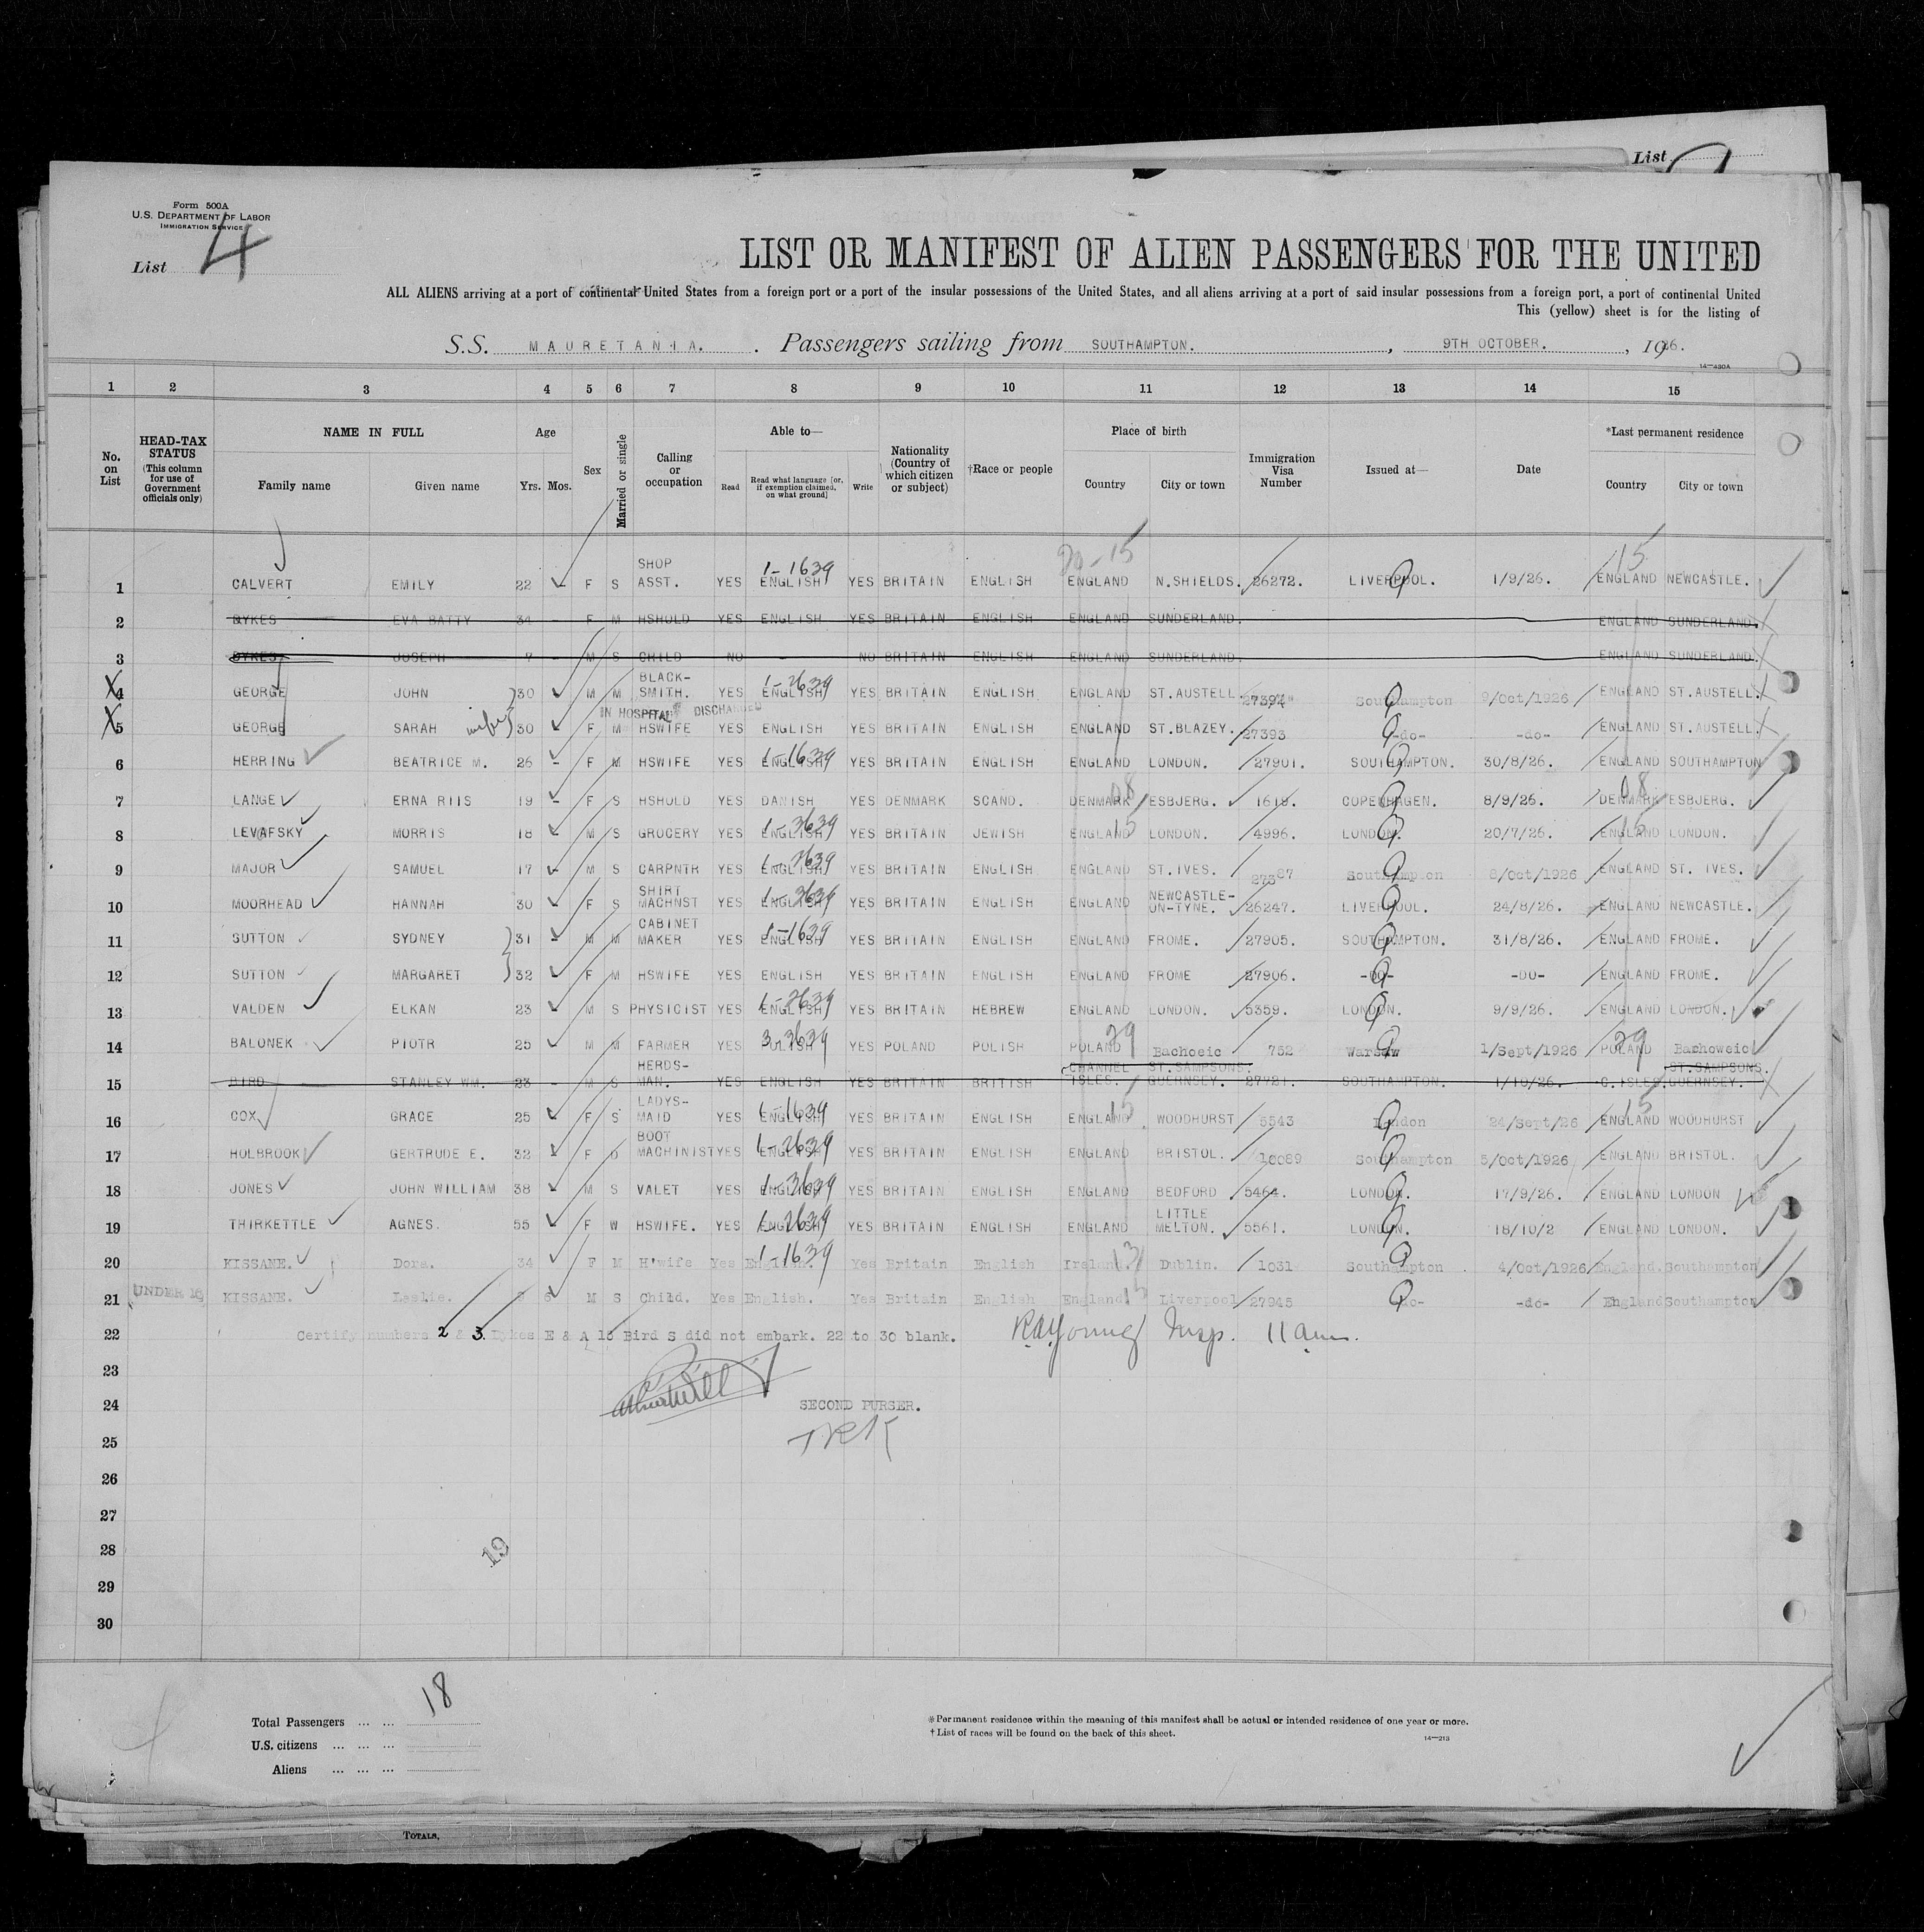 List
Form 500A
U.S. DEPARTMENT OF LABOR
IMMIGRATION SERVICE
List 4
LIST OR MANIFEST OF ALIEN PASSENGERS FOR THE UNITED
ALL ALIENS arriving at a port of continental United States from a foreign port or a port of the insular possessions of the United States, and all aliens arriving at a port of said insular possessions from a foreign port, a port of continental United
This (yellow) sheet is for the listing of
S.S. MAURETANIA. Passengers sailing from SOUTHAMPTON. , 9TH OCTOBER. , 1926.
14—430A
1 2 3 4 5 6 7 8 9 10 11 12 13 14 15
No. on List HEAD-TAX STATUS (This column for use of Government officials only) NAME IN FULL Family name Given name Age Yrs. Mos. Sex Married or single Calling or occupation Able to— Read Read what language [or, if exemption claimed, on what ground] Write Nationality (Country of which citizen or subject) †Race or people Place of birth Country City or town Immigration Visa Number Issued at— Date *Last permanent residence Country City or town
1 CALVERT EMILY 22 - F S SHOP ASST. YES ENGLISH 1-1639 YES BRITAIN ENGLISH ENGLAND N.SHIELDS. 26272. LIVERPOOL. 1/9/26. 15 ENGLAND NEWCASTLE.
2 DYKES EVA BATTY 34 - F M HSHOLD YES ENGLISH YES BRITAIN ENGLISH ENGLAND SUNDERLAND. ENGLAND SUNDERLAND.
3 DYKES JOSEPH 7 - M S CHILD NO - NO BRITAIN ENGLISH ENGLAND SUNDERLAND. ENGLAND SUNDERLAND.
4 GEORGE JOHN 30 M M BLACK-SMITH. YES ENGLISH 1-2639 YES BRITAIN ENGLISH ENGLAND ST.AUSTELL. Southampton /Oct/1926 ENGLAND ST.AUSTELL.
IN HOSPITAL DISCHARGED
5 GEORGE SARAH wife 30 F M HSWIFE YES ENGLISH YES BRITAIN ENGLISH ENGLAND ST.BLAZEY. 27393 -do- -do- ENGLAND ST.AUSTELL.
6 HERRING BEATRICE M. 26 - F M HSWIFE YES ENGLISH 1-1639 YES BRITAIN ENGLISH ENGLAND LONDON. 27901. SOUTHAMPTON. 30/8/26. ENGLAND SOUTHAMPTON
7 LANGE ERNA RIIS 19 - F S HSHOLD YES DANISH YES DENMARK SCAND. DENMARK 08 ESBJERG. 1619. COPENHAGEN. 8/9/26. DENMARK 08 ESBJERG.
8 LEVAFSKY MORRIS 18 - M S GROCERY YES ENGLISH 1-3639 YES BRITAIN JEWISH ENGLAND 15 LONDON. 4996. LONDON. 20/7/26. ENGLAND 15 LONDON.
9 MAJOR SAMUEL 17 - M S CARPNTR YES ENGLISH 1-2639 YES BRITAIN ENGLISH ENGLAND ST.IVES. 27387 Southampton 8/Oct/1926 ENGLAND ST. IVES.
10 MOORHEAD HANNAH 30 - F S SHIRT MACHNST YES ENGLISH 1-3639 YES BRITAIN ENGLISH ENGLAND NEWCASTLE-ON-TYNE. 26247. LIVERPOOL. 24/8/26. ENGLAND NEWCASTLE.
11 SUTTON SYDNEY 31 - M M CABINET MAKER YES ENGLISH 1-1639 YES BRITAIN ENGLISH ENGLAND FROME. 27905. SOUTHAMPTON. 31/8/26. ENGLAND FROME.
12 SUTTON MARGARET 32 - F M HSWIFE YES ENGLISH YES BRITAIN ENGLISH ENGLAND FROME 27906. -DO- -DO- ENGLAND FROME.
13 VALDEN ELKAN 23 M S PHYSICIST YES ENGLISH 1-2639 YES BRITAIN HEBREW ENGLAND LONDON. 5359. LONDON. 9/9/26. ENGLAND LONDON.
14 BALONEK PIOTR 25 M M FARMER YES POLISH 3-3639 YES POLAND POLISH POLAND 29 Bachoeic 752 Warsaw 1/Sept/1926 POLAND 29 Bachoweic
15 BIRD STANLEY WM. 23 - M S HERDS-MAN. YES ENGLISH YES BRITAIN BRITISH CHANNEL ISLES. ST.SAMPSONS. GUERNSEY. 27721. SOUTHAMPTON. 1/10/26. C.ISLES. ST.SAMPSONS. GUERNSEY.
16 COX GRACE 25 F S LADYS-MAID YES ENGLISH 1-1639 YES BRITAIN ENGLISH ENGLAND 15 WOODHURST 5543 London 24/Sept/26 ENGLAND 15 WOODHURST
17 HOLBROOK GERTRUDE E. 32 F D BOOT MACHINIST YES ENGLISH 1-2639 YES BRITAIN ENGLISH ENGLAND BRISTOL. 10089 Southampton 5/Oct/1926 ENGLAND BRISTOL.
18 JONES JOHN WILLIAM 38 - M S VALET YES ENGLISH 1-3639 YES BRITAIN ENGLISH ENGLAND BEDFORD 5464. LONDON. 17/9/26. ENGLAND LONDON
19 THIRKETTLE AGNES. 55 F W HSWIFE. YES ENGLISH 1-2639 YES BRITAIN ENGLISH ENGLAND LITTLE MELTON. 5561. LONDON. 18/10/2 ENGLAND LONDON.
20 KISSANE. Dora. 34 F M H'wife Yes English. 1-1639 Yes Britain English Ireland 13 Dublin. 1031 Southampton 4/Oct/1926 England. Southampton
21 UNDER 16 KISSANE. Leslie. 6 M S Child. Yes English. Yes Britain English England 15 Liverpool 27945 -do- -do- England Southampton
22 Certify numbers 2 & 3 Dykes E & A 15 Bird S did not embark. 22 to 30 blank. R.A.Young Insp. 11 am.
23
24 SECOND PURSER.
25 TRK
26
27
28 19
29
30
18
Total Passengers ... ...
U.S. citizens ... ... ...
Aliens ... ... ...
*Permanent residence within the meaning of this manifest shall be actual or intended residence of one year or more.
†List of races will be found on the back of this sheet.
14—213
TOTALS,